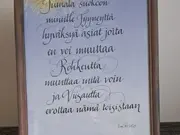 Jumala suokoon
minulle Tyyneyttä
hyväksyä asiat joita
en voi muuttaa
Rohkeutta
muuttaa mitä voin
ja Viisautta
erottaa nämä toisistaan